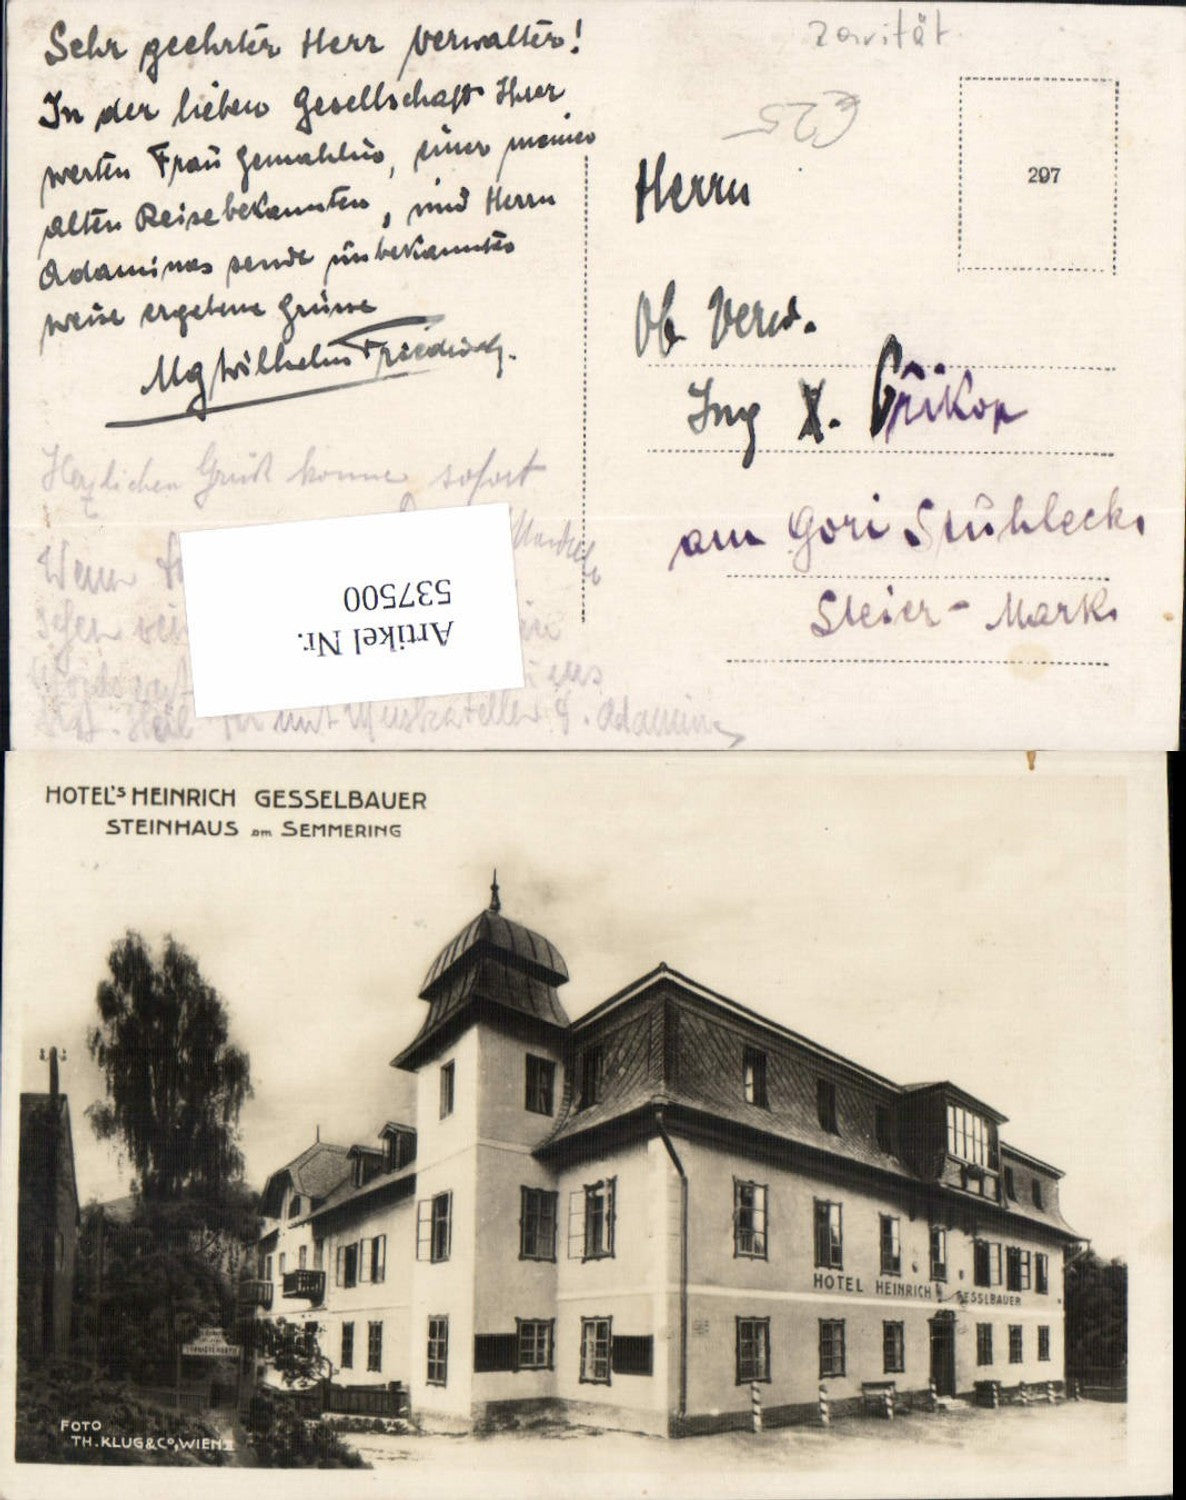 Rarität
€25
Sehr geehrter Herr Verwalter!
In der lieben Gesellschaft Ihrer
werten Frau Gemahlin, einer meiner
alten Reisebekannten, und Herrn
Adaminas sende unbekannter
weise ergebene Grüsse
Mg Wilhelm
Herzlichen Gruß komme sofort
Wenn
Heil mit Muskateller
297
Herrn
Ob. Verw.
Ing X.
am Gori Stuhleck.
Steier-Mark.
Artikel Nr.
537500
HOTEL'S HEINRICH GESSELBAUER
STEINHAUS am SEMMERING
HOTEL HEINRICH GESSLBAUER
FOTO
TH. KLUG & Co, WIEN II